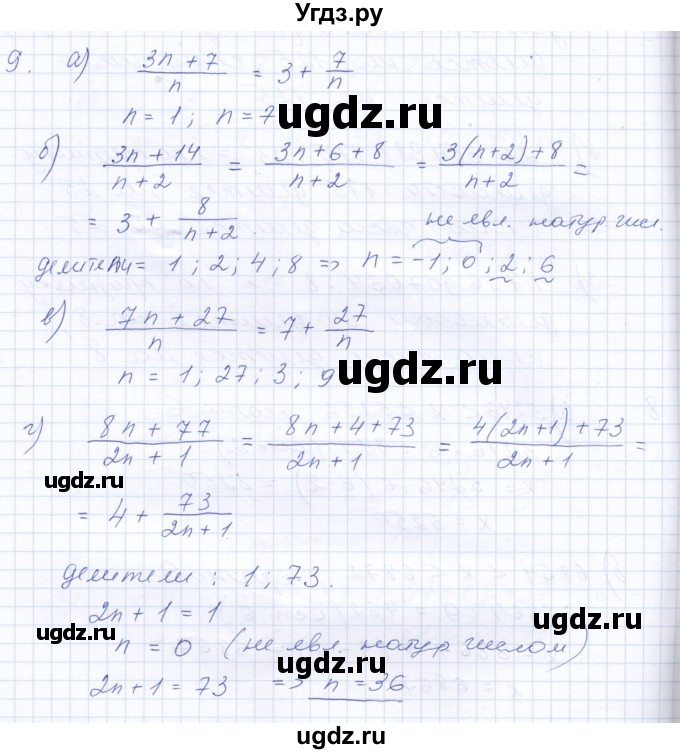 Угдз.ру
9. а) (3n + 7)/n = 3 + 7/n
n = 1; n = 7
ugdz.ru
б) (3n + 14)/(n + 2) = (3n + 6 + 8)/(n + 2) = (3(n+2) + 8)/(n + 2) =
= 3 + 8/(n + 2). не явл. натур числ.
делители = 1; 2; 4; 8 => n = -1; 0; 2; 6
в) (7n + 27)/n = 7 + 27/n
n = 1; 27; 3; 9
ugdz.ru
г) (8n + 77)/(2n + 1) = (8n + 4 + 73)/(2n + 1) = (4(2n+1) + 73)/(2n + 1) =
ugdz.ru
= 4 + 73/(2n + 1)
делители: 1; 73.
2n + 1 = 1
ugdz.ru
ugdz.ru
n = 0 (не явл. натур числом)
ugdz.ru
2n + 1 = 73 => n = 36